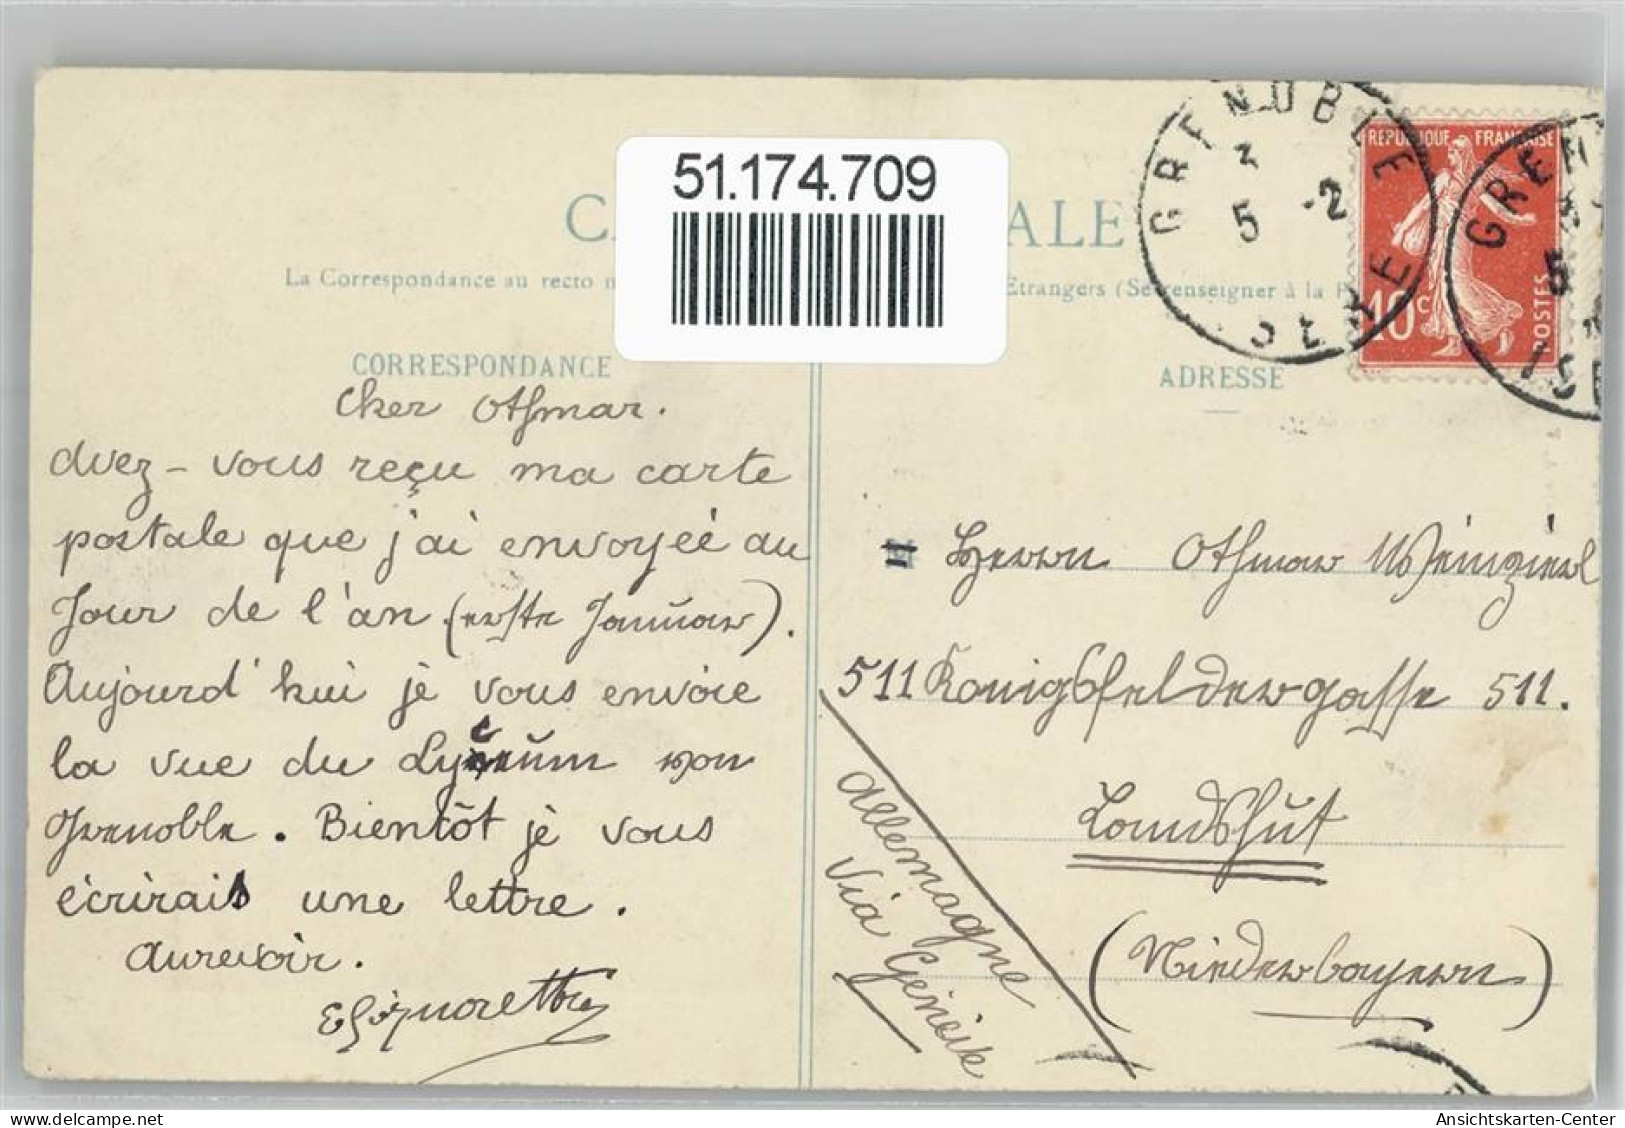 51.174.709
ALE
La Correspondance au recto
Etrangers (Se renseigner à la
CORRESPONDANCE
ADRESSE
GRENOBLE
5 -2
ISERE
REPUBLIQUE FRANÇAISE
10c
POSTES
Cher Othmar.
Avez-vous reçu ma carte
postale que j'ai envoyée au
Jour de l'an (erste Januar).
Aujourd'hui je vous envoie
la vue du Lyceum von
Grenoble. Bientôt je vous
écrirais une lettre.
Aurevoir.
Herrn Othmar
511 Königsfeldergasse 511.
Landshut
(Niederbayern)
Allemagne
via Genève
Ansichtskarten-Center